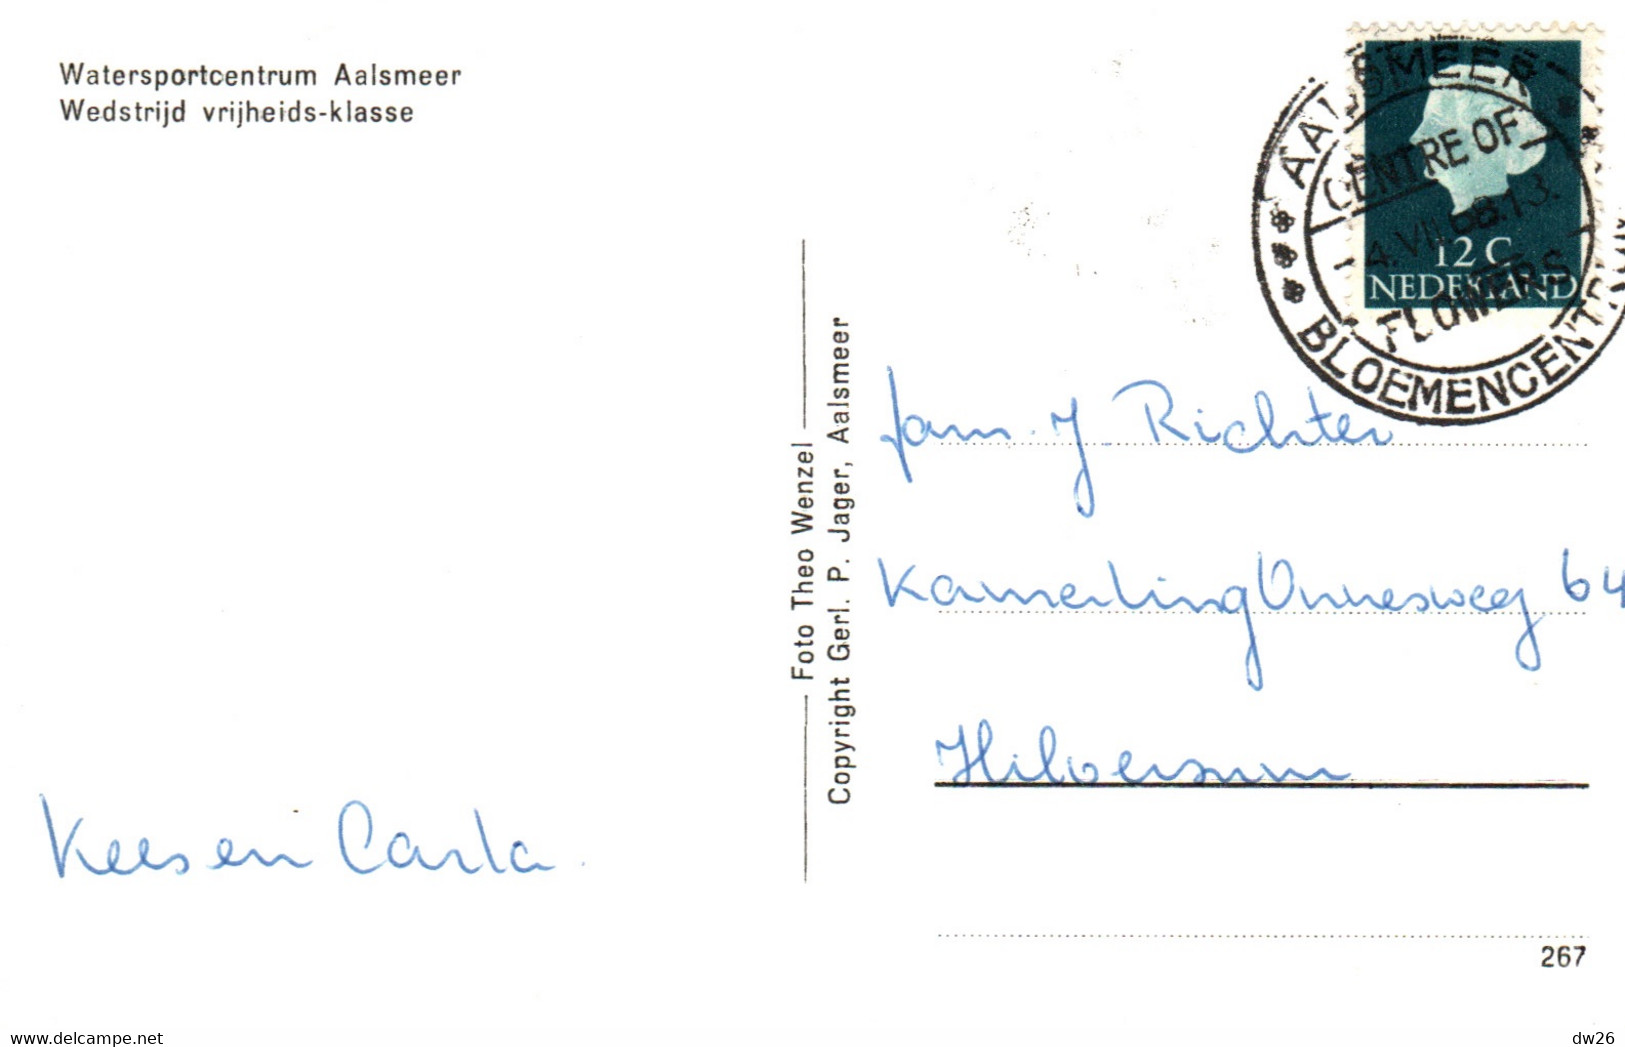 Watersportcentrum Aalsmeer
Wedstrijd vrijheids-klasse
AALSMEER
CENTRE OF
4.VII.68.13.
FLOWERS
BLOEMENCENTRUM
12 C
NEDERLAND
Foto Theo Wenzel
Copyright Gerl. P. Jager, Aalsmeer
fam. J. Richter
Kamerling Onnesweg 64
Hilversum
Kees en Carla.
267
www.delcampe.net
dw26